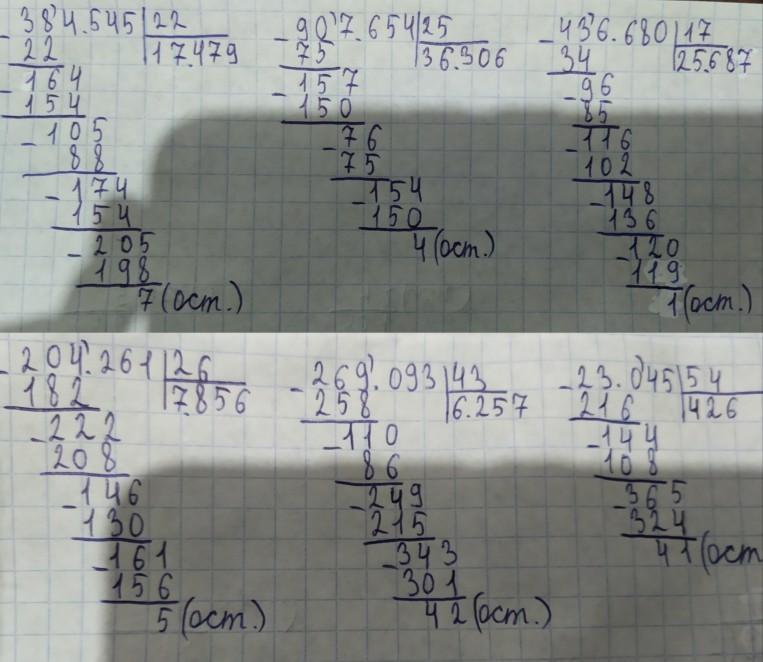 - 384.545 | 22
22 | 17.479
- 164
154
- 105
88
- 174
154
- 205
198
7 (ост.)
- 907.654 | 25
75 | 36.306
- 157
150
- 76
75
- 154
150
4 (ост.)
- 436.680 | 17
34 | 25.687
- 96
85
- 116
102
- 148
136
- 120
119
1 (ост.)
- 204.261 | 26
182 | 7.856
- 222
208
- 146
130
- 161
156
5 (ост.)
- 269.093 | 43
258 | 6.257
- 110
86
- 249
215
- 343
301
42 (ост.)
- 23.045 | 54
216 | 426
- 144
108
- 365
324
41 (ост